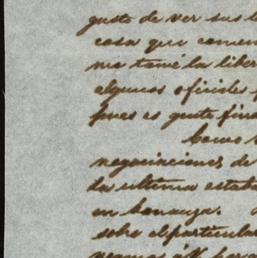 gusto de ver sus l
cosa que comen
me tomé la liber
algunos oficiales
pues es gente fin
Como
negociaciones de
la ultima estab
en bonanza.
sobre el particular